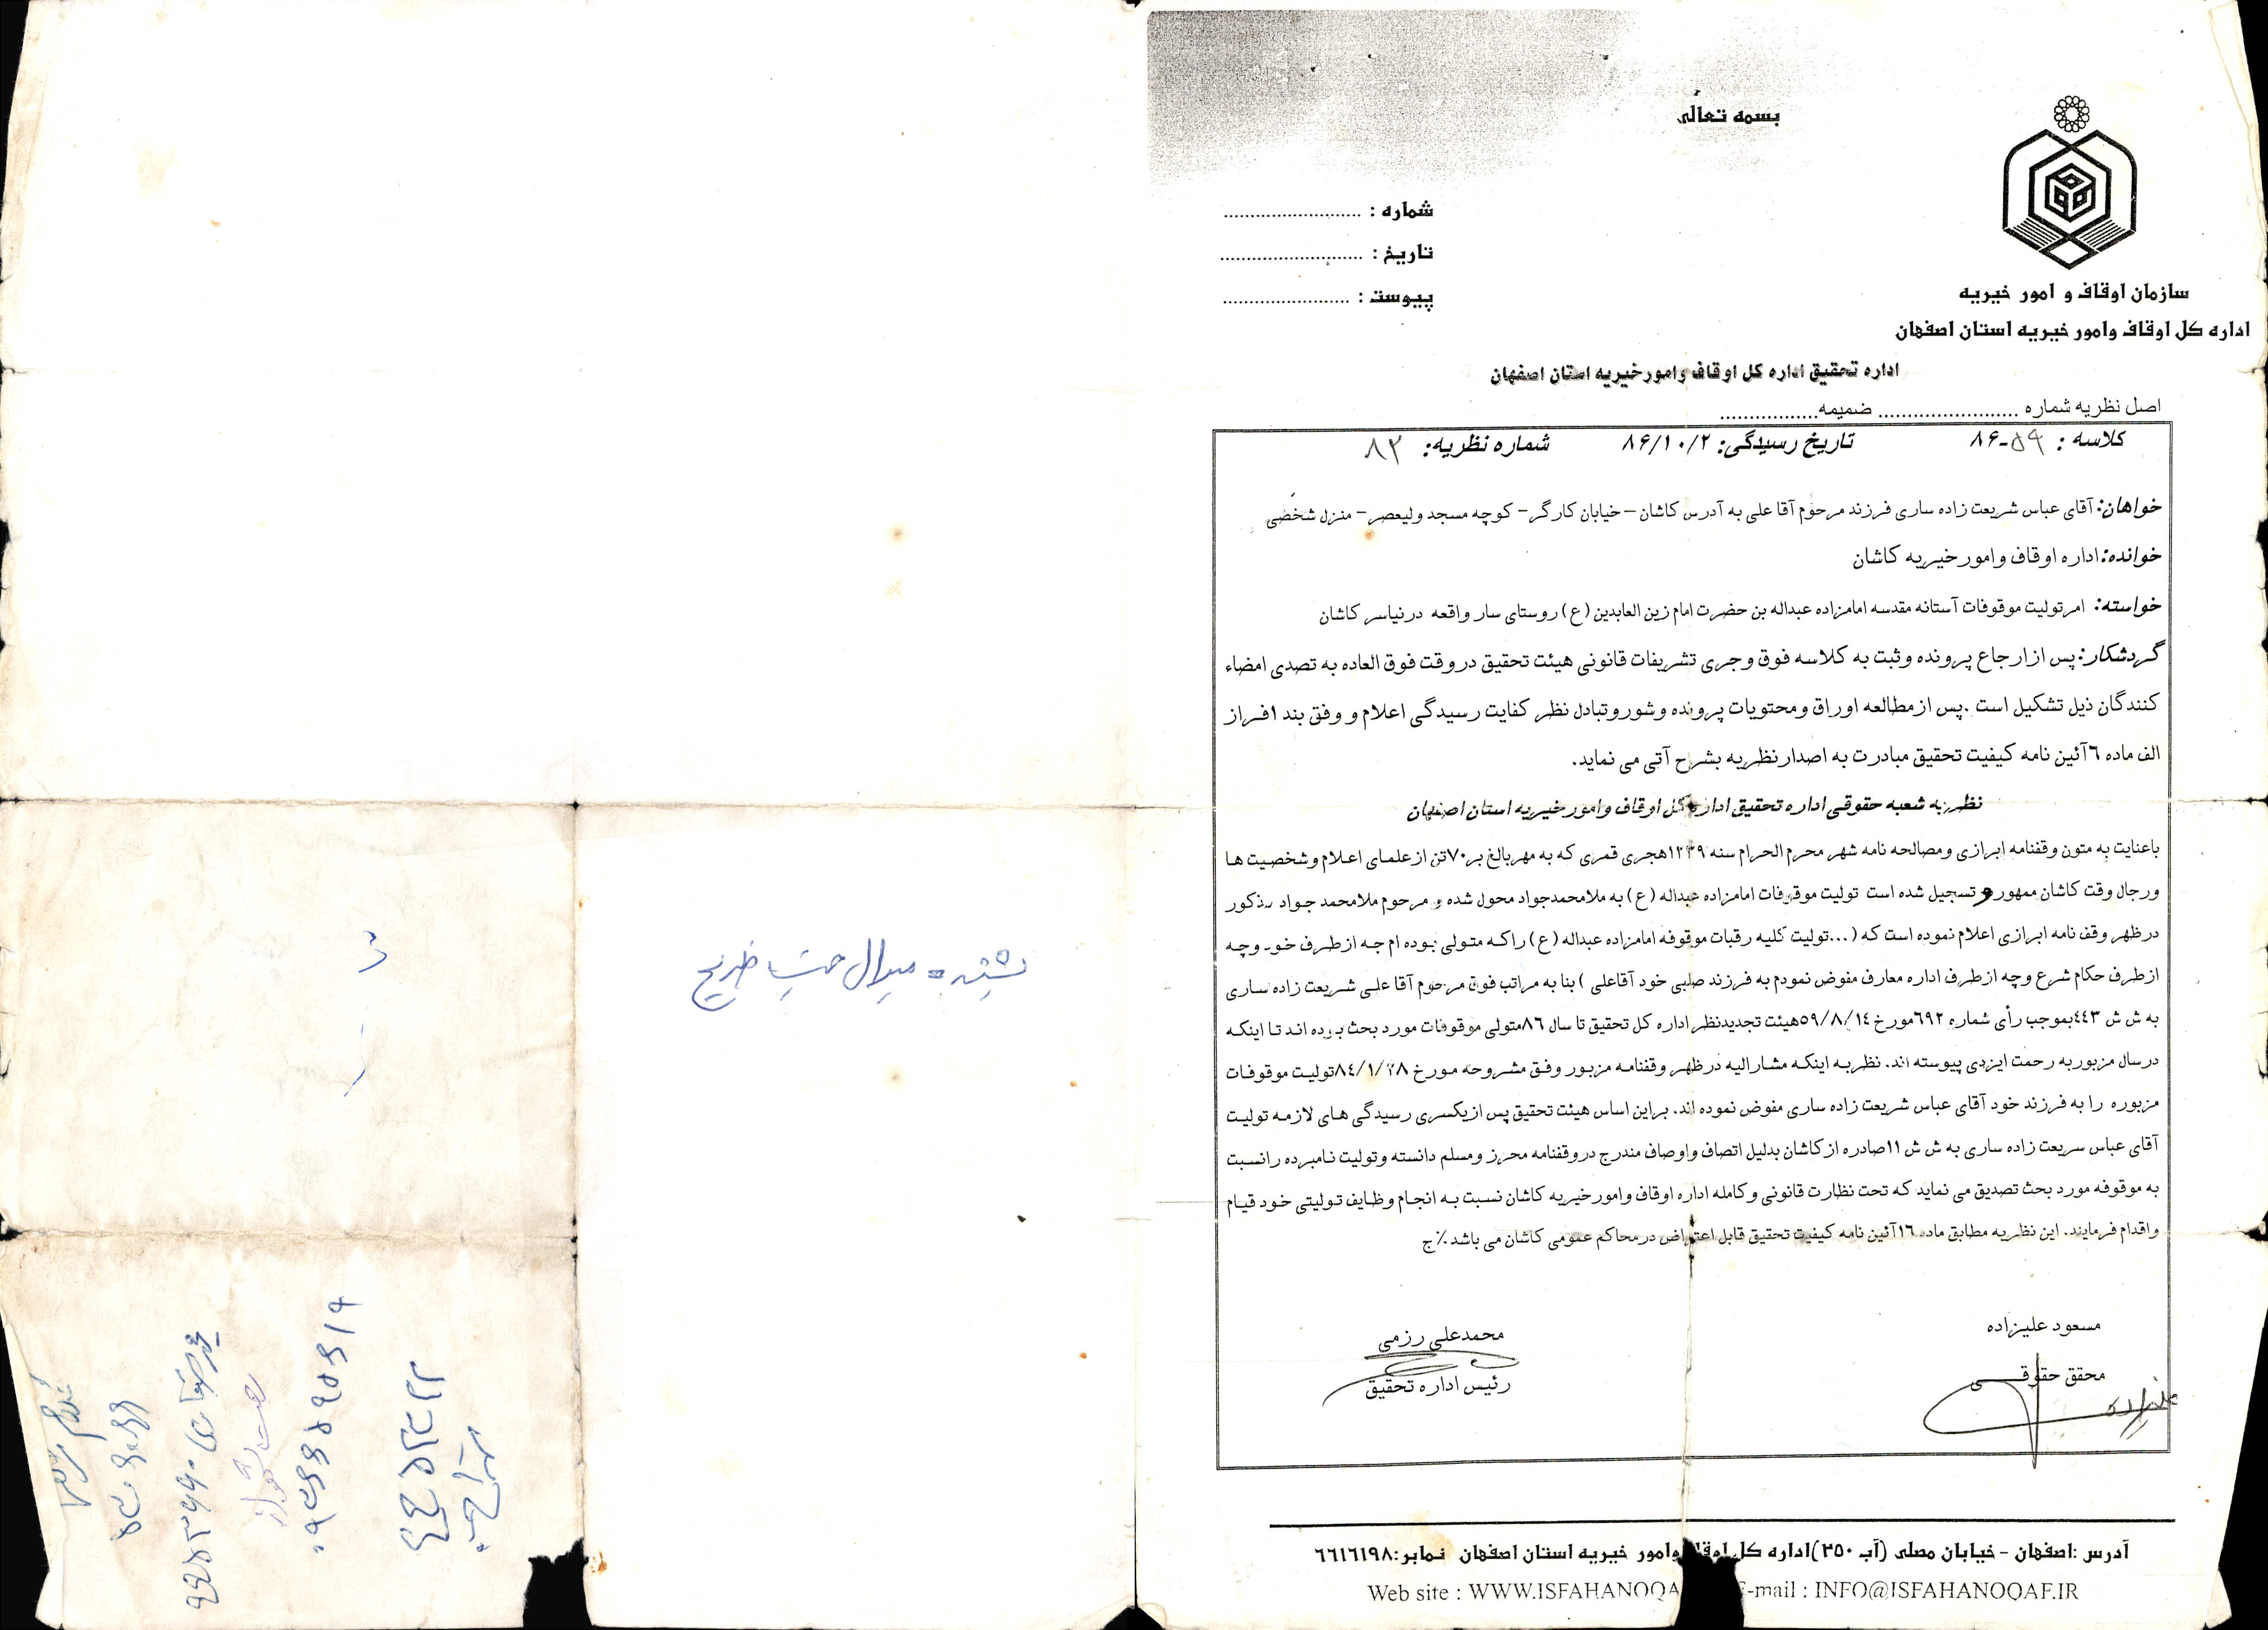 بسمه تعالی
شماره : ..........................
تاریخ : ...........................
پیوست : ........................
سازمان اوقاف و امور خیریه
اداره کل اوقاف وامور خیریه استان اصفهان
اداره تحقیق اداره کل اوقاف وامورخیریه استان اصفهان
اصل نظریه شماره ........................ ضمیمه.................
کلاسه : ۸۶-۵۹ تاریخ رسیدگی: ۸۶/۱۰/۲ شماره نظریه: ۸۳
خواهان: آقای عباس شریعت زاده ساری فرزند مرحوم آقا علی به آدرس کاشان – خیابان کارگر – کوچه مسجد ولیعصر – منزل شخصی
خوانده: اداره اوقاف وامورخیریه کاشان
خواسته: امرتولیت موقوفات آستانه مقدسه امامزاده عبداله بن حضرت امام زین العابدین (ع) روستای سار واقعه درنیاسر کاشان
گردشکار: پس ازارجاع پرونده وثبت به کلاسه فوق وجری تشریفات قانونی هیئت تحقیق دروقت فوق العاده به تصدی امضاء
کنندگان ذیل تشکیل است .پس ازمطالعه اوراق ومحتویات پرونده وشوروتبادل نظر کفایت رسیدگی اعلام و وفق بند ۱فراز
الف ماده ٦آئین نامه کیفیت تحقیق مبادرت به اصدارنظریه بشرح آتی می نماید.
نظریه شعبه حقوقی اداره تحقیق اداره کل اوقاف وامورخیریه استان اصفهان
باعنایت به متون وقفنامه ابرازی ومصالحه نامه شهر محرم الحرام سنه ۱۲۳۹هجری قمری که به مهربالغ بر۷۰تن ازعلمای اعلام وشخصیت ها
ورجال وقت کاشان ممهور و تسجیل شده است تولیت موقوفات امامزاده عبداله (ع) به ملامحمدجواد محول شده و مرحوم ملامحمد جواد مذکور
درظهر وقف نامه ابرازی اعلام نموده است که (...تولیت کلیه رقبات موقوفه امامزاده عبداله (ع) راکه متولی بوده ام چه ازطرف خود وچه
ازطرف حکام شرع وچه ازطرف اداره معارف مفوض نمودم به فرزند صلبی خود آقاعلی ) بنا به مراتب فوق مرحوم آقا علی شریعت زاده ساری
به ش ش ٤٤٣بموجب رأی شماره ٦٩٢مورخ ٥٩/٨/١٤هیئت تجدیدنظر اداره کل تحقیق تا سال ٨٦متولی موقوفات مورد بحث بوده اند تا اینکه
درسال مزبوربه رحمت ایزدی پیوسته اند. نظربه اینکه مشارالیه درظهر وقفنامه مزبور وفق مشروحه مورخ ٨٤/١/٢٨تولیت موقوفات
مزبوره را به فرزند خود آقای عباس شریعت زاده ساری مفوض نموده اند. براین اساس هیئت تحقیق پس ازیکسری رسیدگی های لازمه تولیت
آقای عباس سریعت زاده ساری به ش ش ۱۱صادره ازکاشان بدلیل اتصاف واوصاف مندرج دروقفنامه محرز ومسلم دانسته وتولیت نامبرده رانسبت
به موقوفه مورد بحث تصدیق می نماید که تحت نظارت قانونی وکامله اداره اوقاف وامورخیریه کاشان نسبت به انجام وظایف تولیتی خود قیام
واقدام فرمایند. این نظریه مطابق ماده ۱٦آئین نامه کیفیت تحقیق قابل اعتراض درمحاکم عمومی کاشان می باشد٪ ج
مسعود علیزاده
محقق حقوقی
علیزاده
محمدعلی رزمی
رئیس اداره تحقیق
آدرس :اصفهان - خیابان مصلی (آب ۲۵۰)اداره کل اوقاف وامور خیریه استان اصفهان نمابر:٦٦١٦١٩٨
Web site : WWW.ISFAHANOQA E-mail : INFO@ISFAHANOQAF.IR